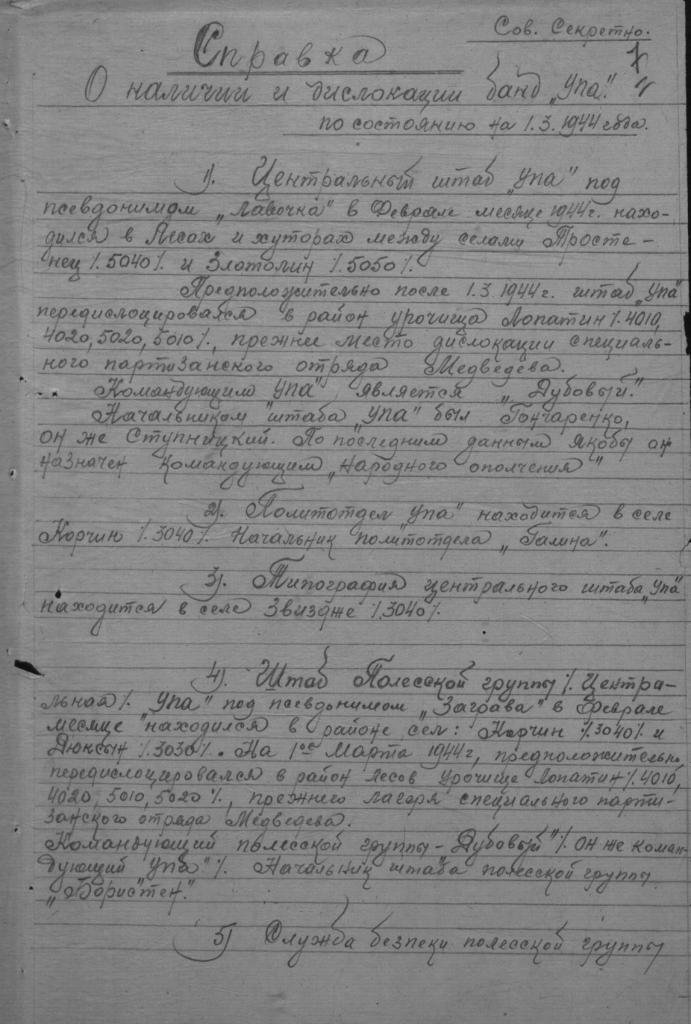 Сов. Секретно.
Справка
О наличии и дислокации банд „Упа".
по состоянию на 1.3.1944 года.
1). Центральный штаб „Упа" под
псевдонимом „Лавочка" в Феврале месяце 1944 г. нахо-
дился в Лесах и хуторах между селами Тросте-
нец /.5040/. и Злотолин /.5050/.
Предположительно после 1.3.1944 г. штаб „Упа"
передислоцировался в район урочища Лопатин /.4010,
4020, 5020, 5010/., прежнее место дислокации специаль-
ного партизанского отряда Медведева.
Командующим Упа" является „Дубовый".
Начальником штаба „Упа" был Гончаренко,
он же Ступницкий. По последним данным якобы он
назначен командующим „народного ополчения"
2). Политотдел Упа" находится в селе
Корчин /.3040/. Начальник политотдела „Галина".
3). Типография центрального штаба „Упа"
находится в селе Звиздже /.3040/.
4). Штаб Полесской группы /. Центра-
льной /. Упа" под псевдонимом „Заграва" в Феврале
месяце находился в районе сел: Корчин /.3040/. и
Дюксын /.3030/. На 1ое Марта 1944 г, предположительно,
передислоцировался в район лесов урочище Лопатин /.4010,
4020, 5010, 5020 /., прежнего лагеря специального парти-
занского отряда Медведева.
Командующий полесской группы – Дубовый" /. он же коман-
дующий Упа" /. Начальник штаба полесской группы
„Бористен."
5) Служба безпеки полесской группы